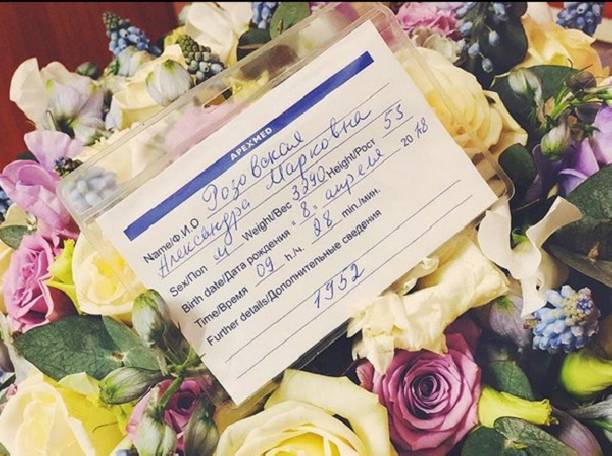 APEXMED
Name/Ф.И.О Розовская
Александра Марковна
Sex/Пол Weight/Вес 3390 Height/Рост 53
Birth date/Дата рождения "8" апреля 2018
Time/Время 09 h./ч. 28 min./мин.
Further details/Дополнительные сведения
1952